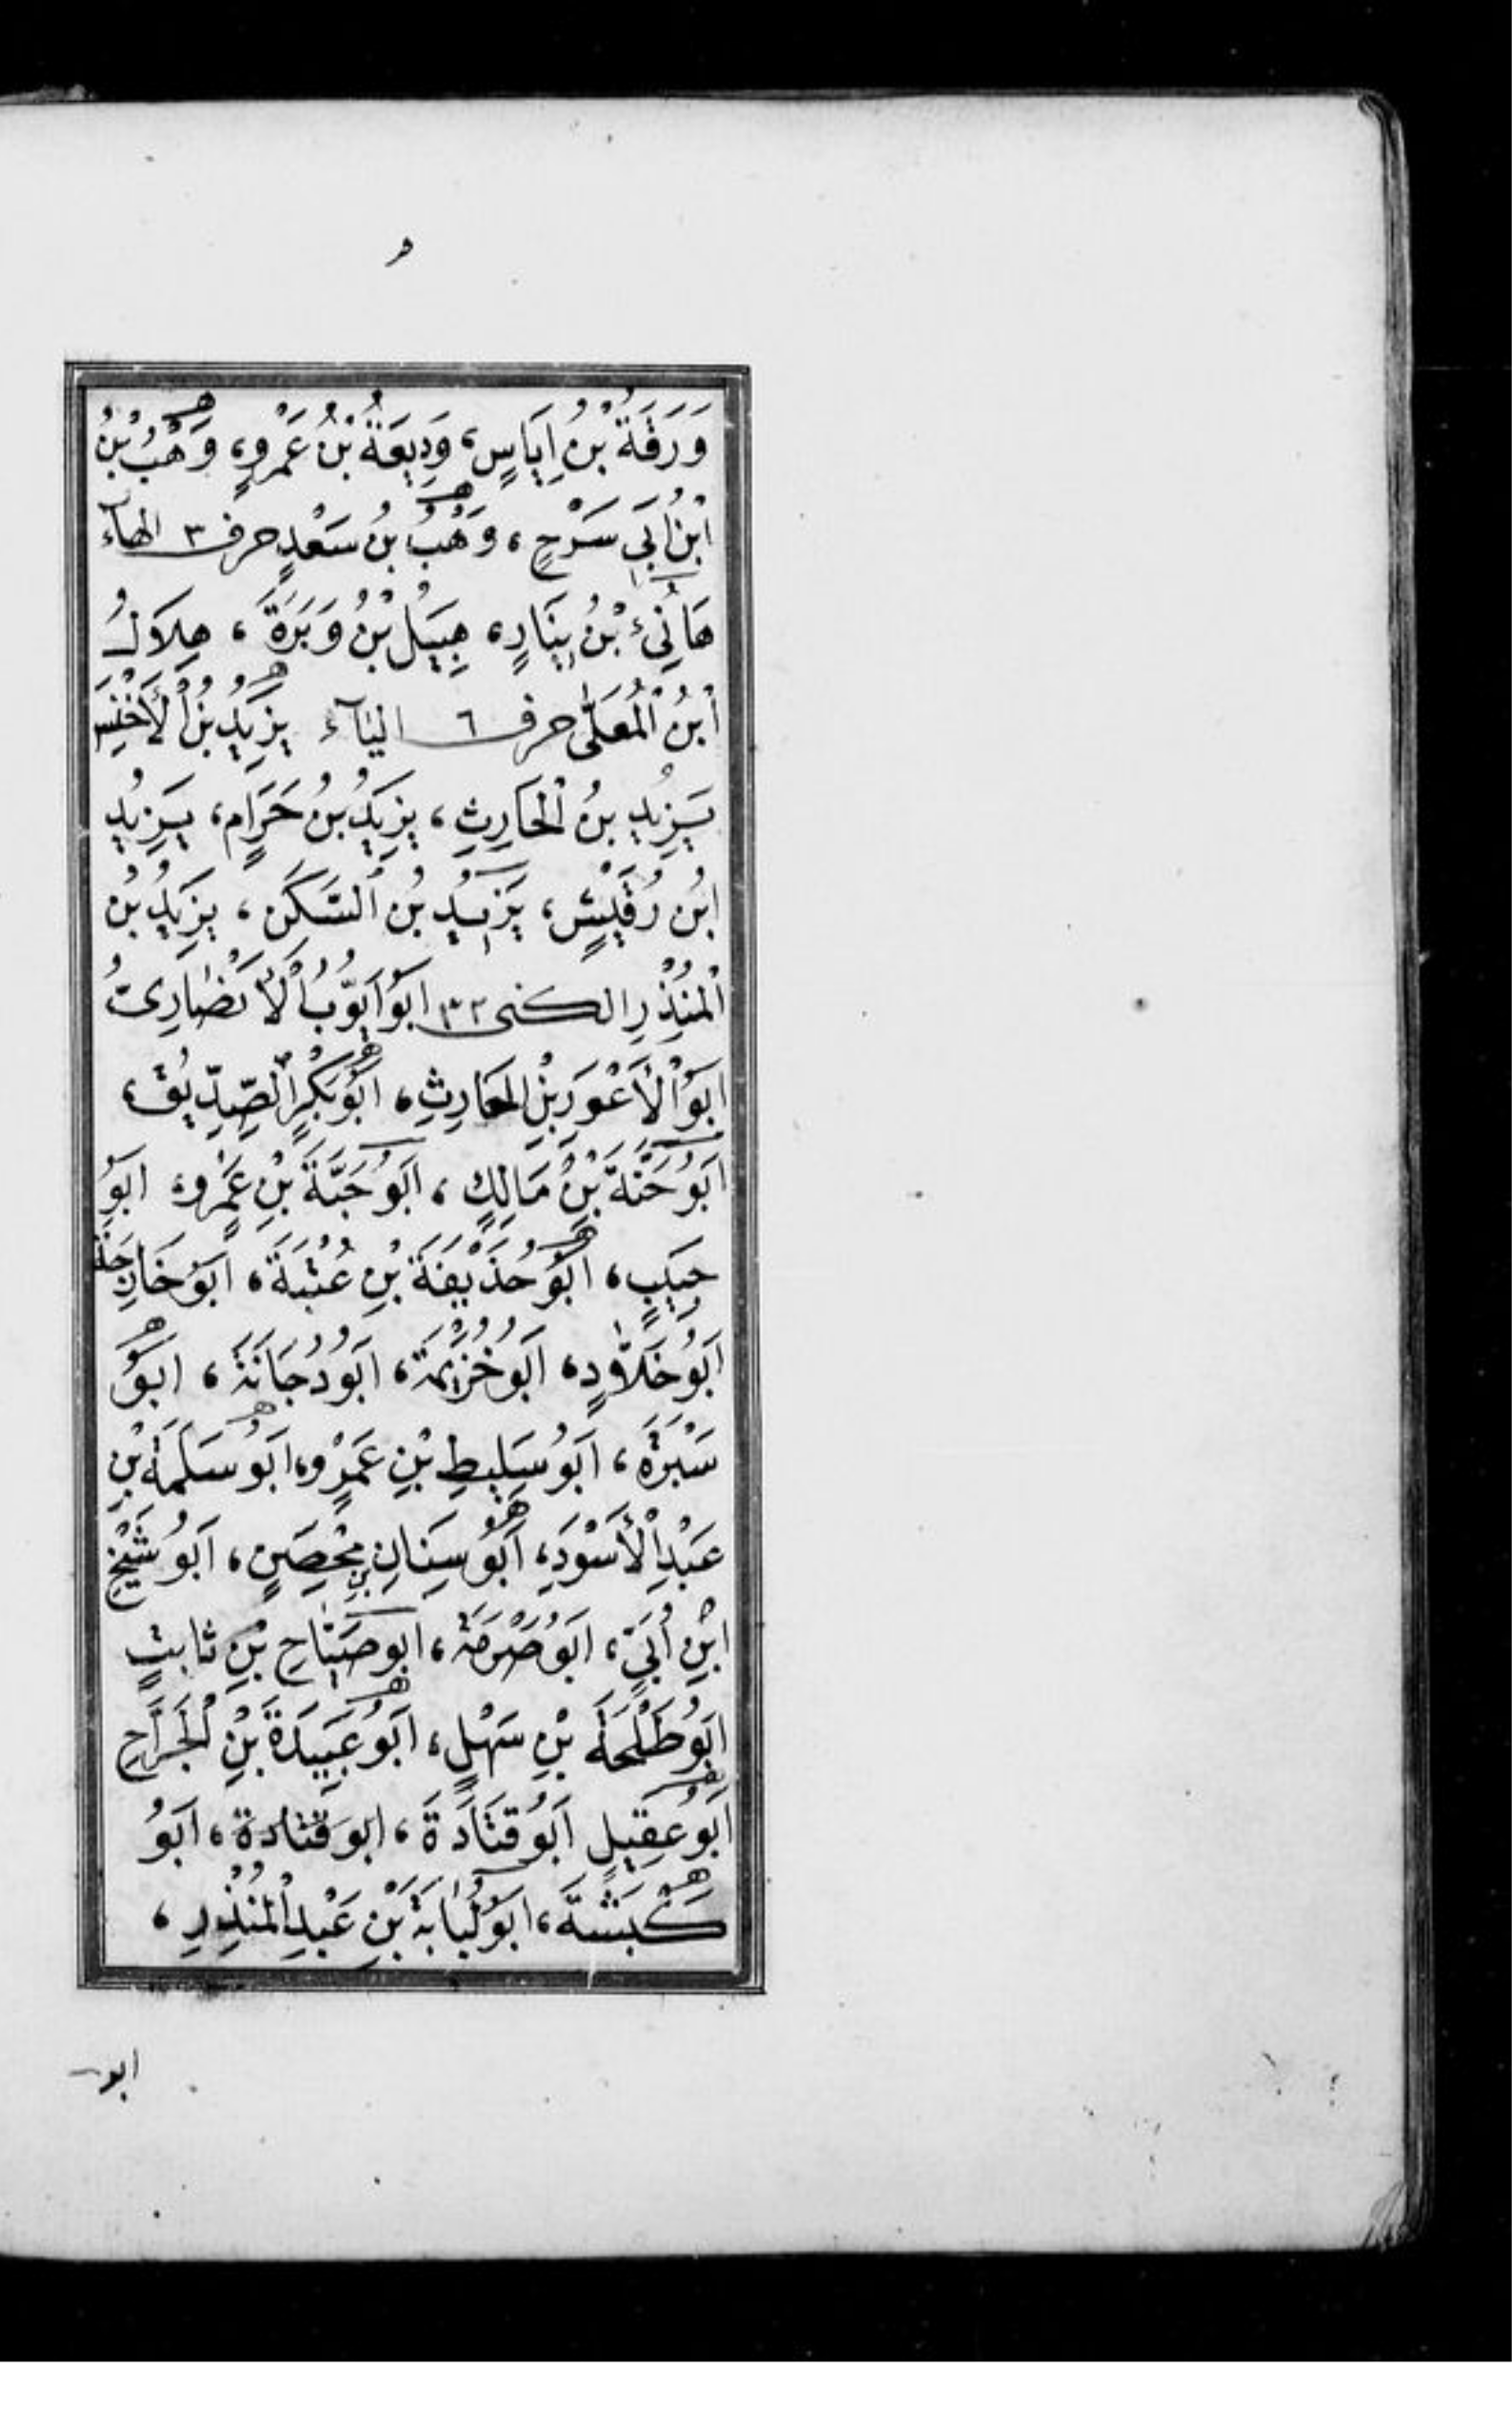 وَرَقَةُ بْنُ اِيَاسٍ، وَدِيعَةُ بْنُ عَمْرٍو، وَهْبُ بْنُ
ابْنُ اَبِي سَرْحٍ، وَهْبُ بْنُ سَعْدٍ حرف ٣ الهآء
هَانِئُ بْنُ نِيَارٍ، هُبَيْلُ بْنُ وَبَرَةَ، هِلَالُ
ابْنُ الْمُعَلَّى حرف ٦ اليآء يَزِيدُ بْنُ الْأَخْنَسِ
يَزِيدُ بْنُ الْحَارِثِ، يَزِيدُ بْنُ حَرَامٍ، يَزِيدُ
ابْنُ رُقَيْشٍ، يَزِيدُ بْنُ السَّكَنِ، يَزِيدُ بْنُ
الْمُنْذِرِ الكنى ٣٢ اَبُو اَيُّوبُ الْأَنْصَارِيُّ
اَبُو الْأَعْوَرِ بْنِ الْحَارِثِ، اَبُو بَكْرٍ الصِّدِّيقُ،
اَبُو حَنَّةَ بْنُ مَالِكٍ، اَبُو حَبَّةَ بْنِ عَمْرٍو، اَبُو
حَبِيبٍ، اَبُو حُذَيْفَةَ بْنِ عُتْبَةَ، اَبُو خَارِجَةَ
اَبُو خَلَّادٍ، اَبُو خُزَيْمَةَ، اَبُو دُجَانَةَ، اَبُو
سَبْرَةَ، اَبُو سَلِيطِ بْنِ عَمْرٍو، اَبُو سَلَمَةَ بْنِ
عَبْدِ الْأَسْوَدِ، اَبُو سِنَانِ بْنِ مِحْصَنٍ، اَبُو شَيْخِ
ابْنِ اُبَيٍّ، اَبُو صِرْمَةَ، ابو ضَيَّاحِ بْنِ ثَابِتٍ
اَبُو طَلْحَةَ بْنِ سَهْلٍ، اَبُو عُبَيْدَةَ بْنِ الْجَرَّاحِ
اَبُو عَقِيلٍ اَبُو قَتَادَةَ، ابو قَتَادة، اَبُو
كَبْشَةَ، اَبُو لُبَابَةَ بْنِ عَبْدِ الْمُنْذِرِ،
ابو